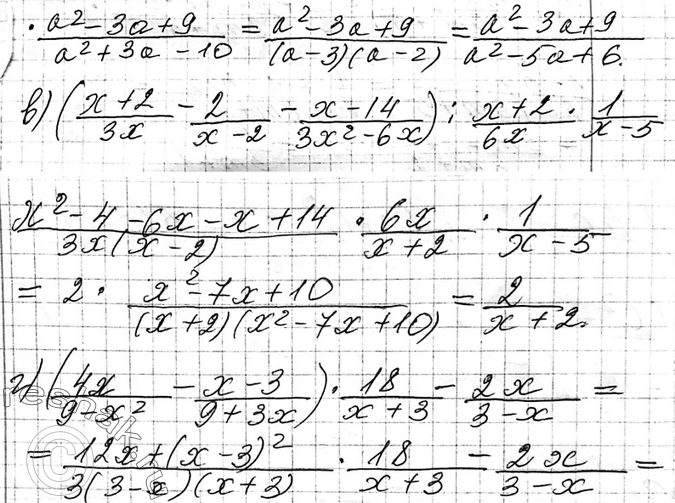 · (a² - 3a + 9)/(a² + 3a - 10) = (a² - 3a + 9)/((a - 3)(a - 2)) = (a² - 3a + 9)/(a² - 5a + 6).
в) ((x + 2)/(3x) - 2/(x - 2) - (x - 14)/(3x² - 6x)) : (x + 2)/(6x) · 1/(x - 5)
(x² - 4 - 6x - x + 14)/(3x(x - 2)) · (6x)/(x + 2) · 1/(x - 5)
= 2 · (x² - 7x + 10)/((x + 2)(x² - 7x + 10)) = 2/(x + 2).
г) ((4x)/(9 - x²) - (x - 3)/(9 + 3x)) · 18/(x + 3) - (2x)/(3 - x) =
= (12x + (x - 3)²)/(3(3 - x)(x + 3)) · 18/(x + 3) - (2x)/(3 - x) =